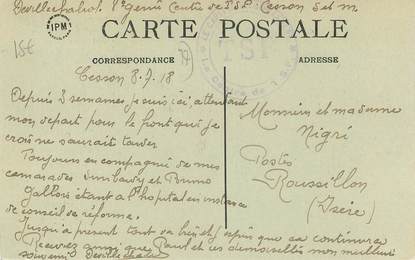 Devillechabrol. 8e génie Centre de TSF. Cesson S et m.
CARTE POSTALE
IPM 1
15€
CORRESPONDANCE
ADRESSE
TSF
Cesson 8-7-18
Depuis 3 semaines je suis ici, attendant
mon depart pour le front qui je
crois ne saurait tarder
Toujours en compagnie de mes
camarades et Bruno
Gallois étant a l'hopital en instance
de conseil de réforme.
Jusqu'a present tout va bien et espere que sa continuera
Recevez ainsi que Paul et ces demoiselles mon meilleur
souvenir
Monsieur et madame
Nigri
Postes
Roussillon
(Isère)